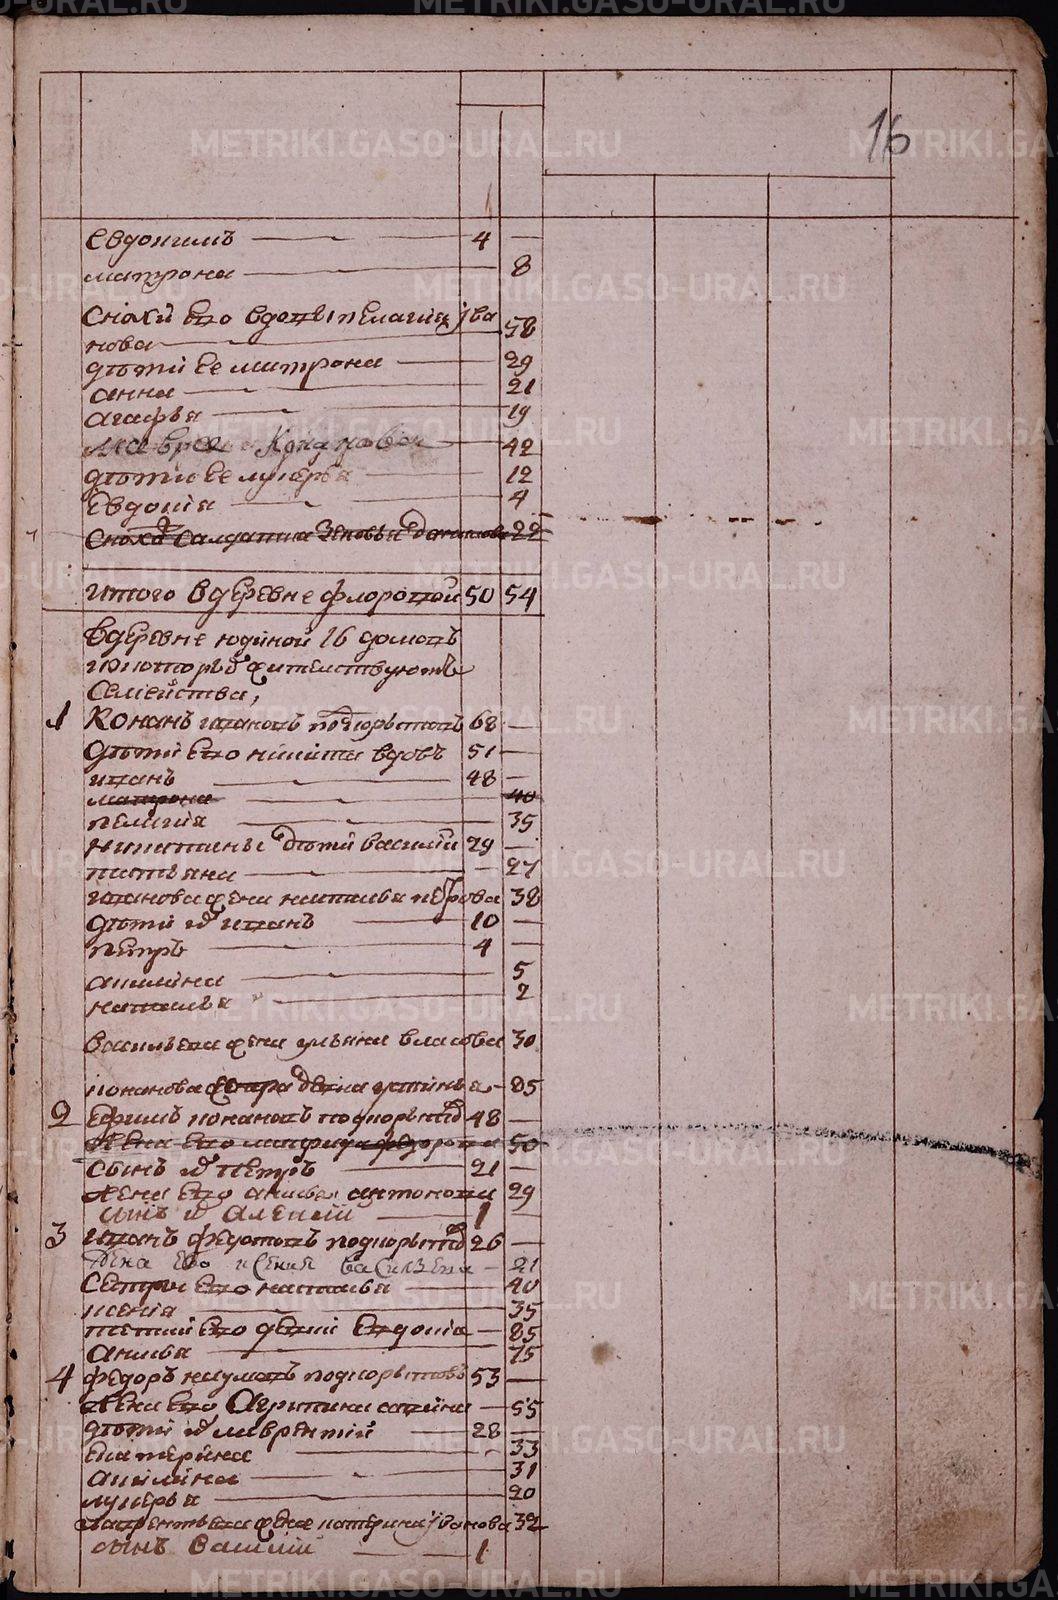 16
Евдокимъ 4 —
матрона 8
Снохи его вдовы пелагия Ива
нова 58
дѣти ее матрона 29
анна 21
агафья 19
мавра 42
дѣти ее лукерья 12
Евдокія 4
Сноха Салдатка Зеновья Данилова 22
итого в деревне флоровой 50 54
В деревне юдиной 16 домовъ
в которыхъ жителствуютъ
Семейства,
1 Кононъ ивановъ подкорытовъ 68 —
дѣти его никита вдовъ 51 —
иванъ 48 —
матрона 40
пелагия 35
никитины дѣти василий 29 —
татьяна 27
иванова жена наталья петрова 38
дѣти их иванъ 10 —
петръ 4 —
акилина 5
наталья 2
васильева жена ульяна власова 30
кононова сестра девка устинья 85
2 Ефимъ кононовъ подкорытов 48 —
Жена его матрида федорова 50
Сынъ их петръ 21 —
Жена его анисья антонова 29
сынъ их Алексей 1 —
3 иванъ федотовъ подкорытов 26 —
жена его ксения васильева 21
Сестры его наталья 40
ксенія 35
тетки его девки Евдокіа 85
Анисья 75
4 федоръ наумовъ подкорытовъ 53 —
жена его Агрипина савина 55
дѣти их лаврентій 28 —
Екатерина 33
акилина 31
лукерья 20
лаврентьева жена катерина Иванова 32
сынъ Василий 1
METRIKI.GASO-URAL.RU